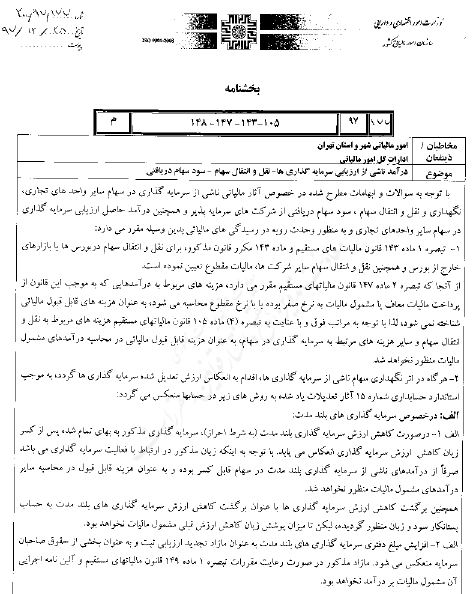 وزارت امور اقتصادی و دارایی
سازمان امور مالیاتی کشور
شماره ۲۰۰/۹۷/۱۷۷
تاریخ
پیوست
ISO 9001:2008
بخشنامه
۱۷۷ ۹۷ ۱۰۵-۱۴۳-۱۴۷-۱۴۸ م
مخاطبان / ذینفعان
امور مالیاتی شهر و استان تهران
ادارات کل امور مالیاتی
موضوع
درآمد ناشی از ارزیابی سرمایه گذاری ها- نقل و انتقال سهام - سود سهام دریافتی
با توجه به سوالات و ابهامات مطرح شده در خصوص آثار مالیاتی ناشی از سرمایه گذاری در سهام سایر واحد های تجاری،
نگهداری و نقل و انتقال سهام ، سود سهام دریافتی از شرکت های سرمایه پذیر و همچنین درآمد حاصل ارزیابی سرمایه گذاری
در سهام سایر واحدهای تجاری و به منظور وحدت رویه در رسیدگی های مالیاتی بدین وسیله مقرر می دارد:
۱- تبصره ۱ ماده ۱۴۳ قانون مالیات های مستقیم و ماده ۱۴۳ مکرر قانون مذکور، برای نقل و انتقال سهام دربورس ها یا بازارهای
خارج از بورس و همچنین نقل و انتقال سهام سایر شرکت ها، مالیات مقطوع تعیین نموده است.
از آنجا که تبصره ۲ ماده ۱۴۷ قانون مالیاتهای مستقیم مقرر می دارد، هزینه های مربوط به درآمدهایی که به موجب این قانون از
پرداخت مالیات معاف یا مشمول مالیات به نرخ صفر بوده یا با نرخ مقطوع محاسبه می شود، به عنوان هزینه های قابل قبول مالیاتی
شناخته نمی شود، لذا با توجه به مراتب فوق و با عنایت به تبصره (۴) ماده ۱۰۵ قانون مالیاتهای مستقیم هزینه های مربوط به نقل و
انتقال سهام و سایر هزینه های مرتبط به سرمایه گذاری در سهام، به عنوان هزینه قابل قبول مالیاتی در محاسبه درآمدهای مشمول
مالیات منظور نخواهد شد.
۲- هرگاه در اثر نگهداری سهام ناشی از سرمایه گذاری ها، اقدام به انعکاس ارزش تعدیل شده سرمایه گذاری ها گردد، به موجب
استاندارد حسابداری شماره ۱۵ آثار تعدیلات یاد شده به روش های زیر در حسابها منعکس می گردد:
الف: درخصوص سرمایه گذاری های بلند مدت:
الف ۱- درصورت کاهش ارزش سرمایه گذاری های بلند مدت (به شرط احراز)، سرمایه گذاری مذکور به بهای تمام شده پس از کسر
زیان کاهش ارزش سرمایه گذاری انعکاس می یابد. با توجه به اینکه زیان مذکور در ارتباط با فعالیت سرمایه گذاری می باشد
صرفاً از درآمدهای ناشی از سرمایه گذاری بلند مدت در سهام قابل کسر بوده و به عنوان هزینه قابل قبول در محاسبه سایر
درآمدهای مشمول مالیات منظور نخواهد شد.
همچنین برگشت کاهش ارزش سرمایه گذاری ها با عنوان برگشت کاهش ارزش سرمایه گذاری های بلند مدت به حساب
بستانکار سود و زیان منظور گردیده، لیکن تا میزان پوشش زیان کاهش ارزش قبلی مشمول مالیات نخواهد بود.
الف ۲- افزایش مبلغ دفتری سرمایه گذاری های بلند مدت به عنوان مازاد تجدید ارزیابی ثبت و به عنوان بخشی از حقوق صاحبان
سرمایه منعکس می شود. مازاد مذکور در صورت رعایت مقررات تبصره ۱ ماده ۱۴۹ قانون مالیاتهای مستقیم و آئین نامه اجرایی
آن مشمول مالیات بر درآمد نخواهد بود.